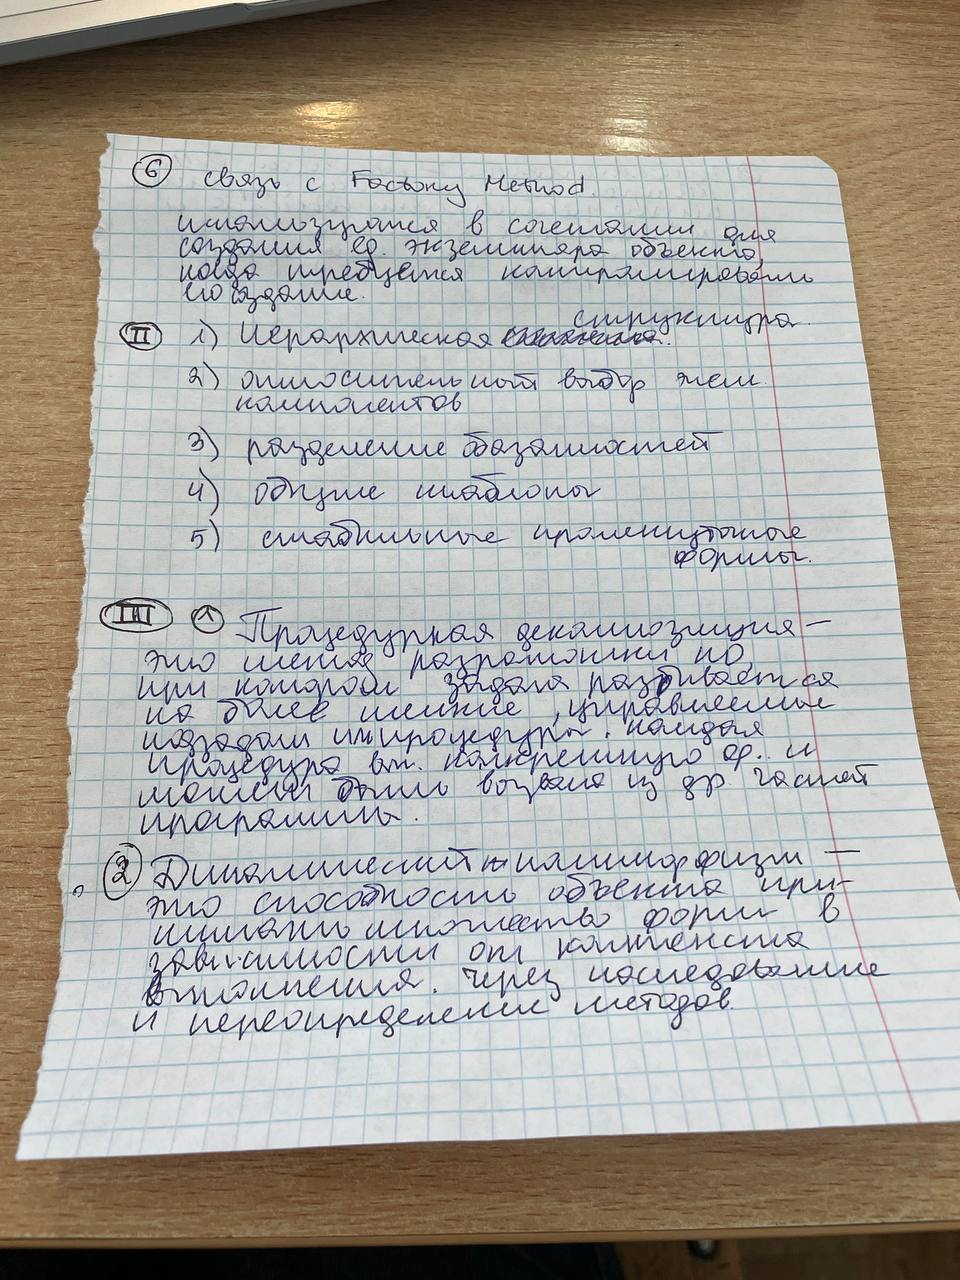 6 связь с Factory Method.
используются в сочетании для
создания ед. экземпляра объекта,
когда требуется контролировать
его создание.
структура
II 1) Иерархическая
2) относительный выбор элем.
компонентов
3) разделение обязанностей
4) общие шаблоны
5) стабильные промежуточные
формы.
III 1 Процедурная декомпозиция –
это метод разработки ПО,
при котором задача разбивается
на более мелкие, управляемые
подзадачи или процедуры. каждая
процедура вып. конкретную ф. и
может быть вызвана из др. частей
программы.
2 Динамический полиморфизм –
это способность объекта при-
нимать множество форм в
зависимости от контекста
выполнения. через наследование
и переопределение методов.